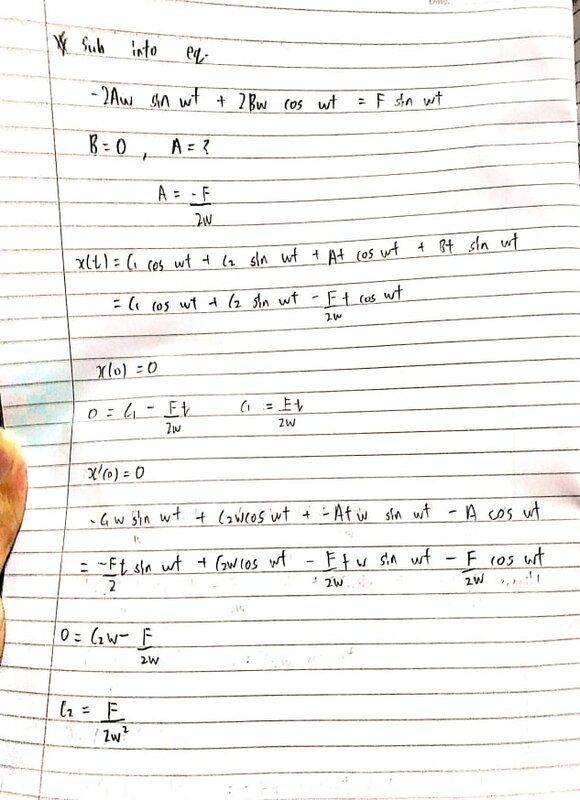 * Sub into eq.
-2Aw sin wt + 2Bw cos wt = F sin wt
B = 0 , A = ?
A = -F/2w
x(t) = C₁ cos wt + C₂ sin wt + At cos wt + Bt sin wt
= C₁ cos wt + C₂ sin wt - F/2w t cos wt
x(0) = 0
0 = C₁ - Ft/2w C₁ = Ft/2w
x'(0) = 0
-C₁w sin wt + C₂w cos wt + -Atw sin wt - A cos wt
= -Ft/2 sin wt + C₂w cos wt - F/2w tw sin wt - F/2w cos wt
0 = C₂w - F/2w
C₂ = F/2w²